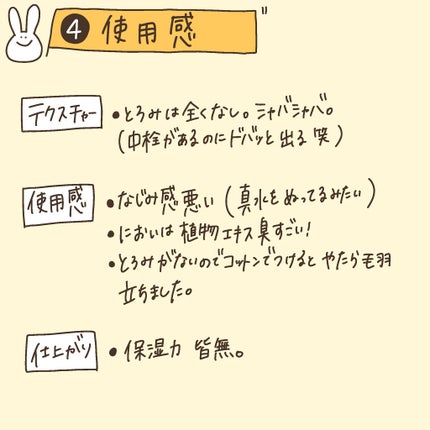 ④ 使用感
テクスチャー
•とろみは全くなし。シャバシャバ。
(中栓があるのにドバッと出る 笑)
使用感
•なじみ感悪い (真水をぬってるみたい)
•においは植物エキス臭すごい!
•とろみがないのでコットンでつけると やたら毛羽
立ちました。
仕上がり
•保湿力 皆無。